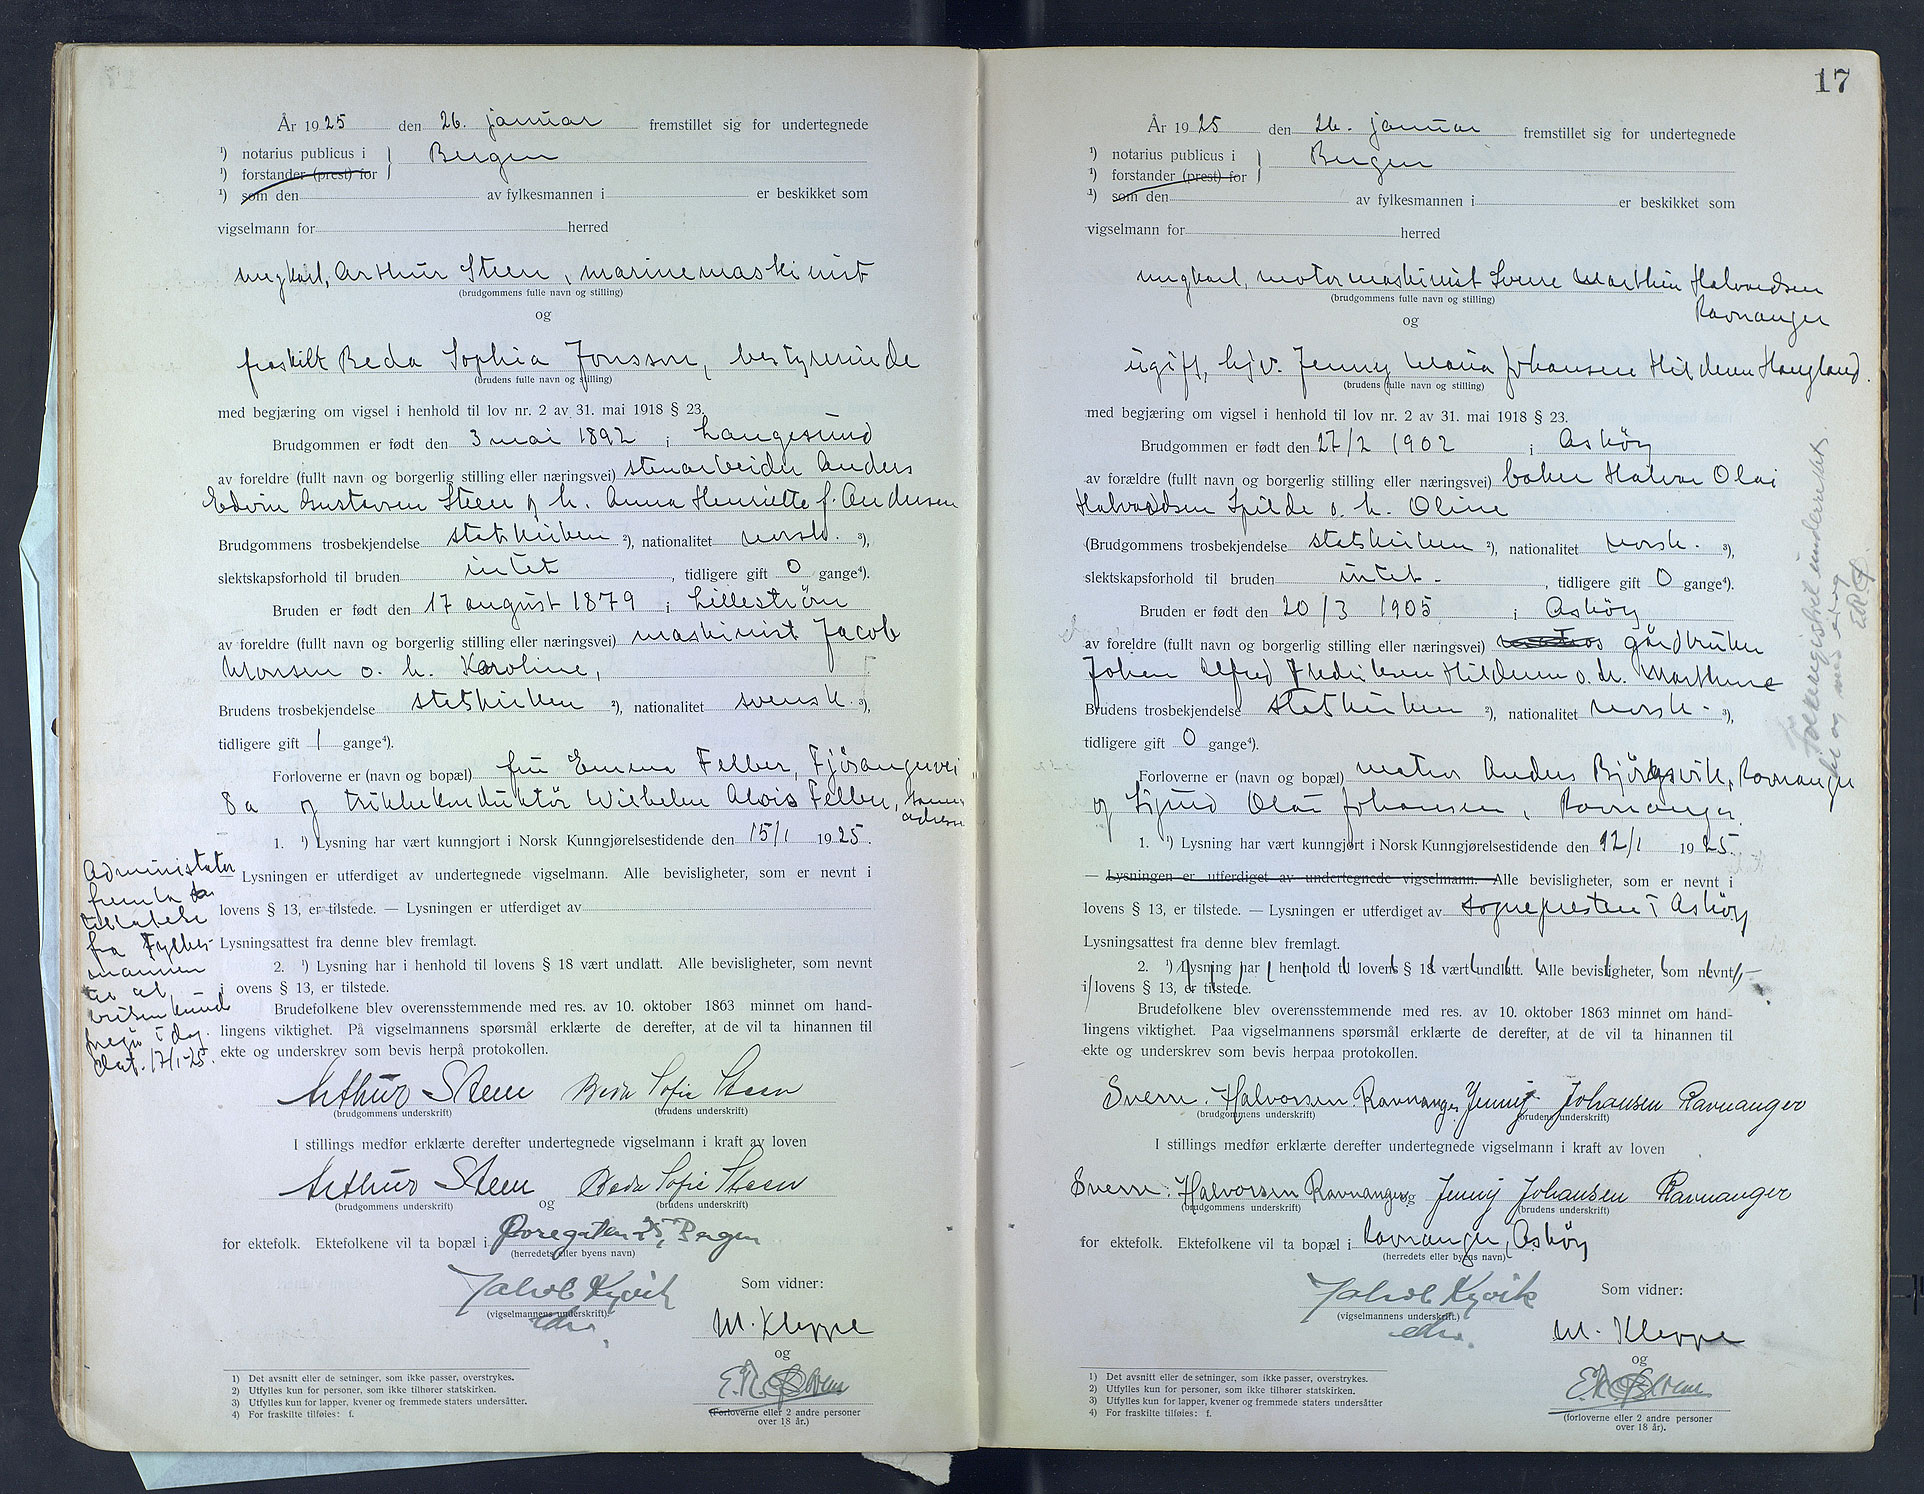 År 1925 den 26. januar fremstillet sig for undertegnede
¹) notarius publicus i } Bergen
¹) forstander (prest) for
¹) som den av fylkesmannen i er beskikket som
vigselmann for herred
ungkarl, Arthur Steen, marinemaskinist
(brudgommens fulle navn og stilling)
og
fraskilt Beda Sophia Jonsson, bestyrerinde
(brudens fulle navn og stilling)
med begjæring om vigsel i henhold til lov nr. 2 av 31. mai 1918 § 23.
Brudgommen er født den 3 mai 1892 i Langesund
av foreldre (fullt navn og borgerlig stilling eller næringsvei) stenarbeider Anders
Edvin Gustavsen Steen og h. Anna Henriette f. Andersen
Brudgommens trosbekjendelse statskirken ²), nationalitet norsk. ³),
slektskapsforhold til bruden intet, tidligere gift 0 gange⁴).
Bruden er født den 17 august 1879 i Lillestrøm
av foreldre (fullt navn og borgerlig stilling eller næringsvei) maskinist Jacob
Monsen o. h. Karoline,
Brudens trosbekjendelse statskirken ²), nationalitet svensk. ³),
tidligere gift 1 gange⁴).
Forloverne er (navn og bopæl) fru Emma Felber, Fjøsangervei
8a og trikkekonduktør Wilhelm Alois Felber, samme
adresse
1. ¹) Lysning har vært kunngjort i Norsk Kunngjørelsestidende den 15/1 1925.
— Lysningen er utferdiget av undertegnede vigselmann. Alle bevisligheter, som er nevnt i
lovens § 13, er tilstede. — Lysningen er utferdiget av
Lysningsattest fra denne blev fremlagt.
2. ¹) Lysning har i henhold til lovens § 18 vært undlatt. Alle bevisligheter, som nevnt
i ovens § 13, er tilstede.
Administrator
fremla
tilladelse
fra Fylkes-
mannen
til at
vielsen kund
foregå i dag.
dat. 17/1-25.
Brudefolkene blev overensstemmende med res. av 10. oktober 1863 minnet om hand-
lingens viktighet. På vigselmannens spørsmål erklærte de derefter, at de vil ta hinannen til
ekte og underskrev som bevis herpå protokollen.
Arthur Steen Beda Sofie Steen
(brudgommens underskrift) (brudens underskrift)
I stillings medfør erklærte derefter undertegnede vigselmann i kraft av loven
Arthur Steen og Beda Sofie Steen
(brudgommens underskrift) (brudens underskrift)
for ektefolk. Ektefolkene vil ta bopæl i Øvregaten 25, Bergen
(herredets eller byens navn)
Jakob Kyvik Som vidner:
(vigselmannens underskrift).
M. Kleppe
og
(Forloverne eller 2 andre personer
over 18 år.)
1) Det avsnitt eller de setninger, som ikke passer, overstrykes.
2) Utfylles kun for personer, som ikke tilhører statskirken.
3) Utfylles kun for lapper, kvener og fremmede staters undersåtter.
4) For fraskilte tilføies: f.
17
År 1925 den 26. januar fremstillet sig for undertegnede
¹) notarius publicus i } Bergen
¹) forstander (prest) for
¹) som den av fylkesmannen i er beskikket som
vigselmann for herred
ungkarl, motormaskinist Sverre Marthin Halvordsen
Ravnanger
(brudgommens fulle navn og stilling)
og
ugift, hjv. Jenny Maria Johansen Hilderen Haugland.
(brudens fulle navn og stilling)
med begjæring om vigsel i henhold til lov nr. 2 av 31. mai 1918 § 23.
Brudgommen er født den 27/2 1902 i Askøy
av forældre (fullt navn og borgerlig stilling eller næringsvei) baker Halvor Olai
Halvordsen Spilde o. h. Oline
(Brudgommens trosbekjendelse statskirken ²), nationalitet norsk. ³),
slektskapsforhold til bruden intet. , tidligere gift 0 gange⁴).
Bruden er født den 20/3 1905 i Askøy
av foreldre (fullt navn og borgerlig stilling eller næringsvei) gårdbruker
Johan Alfred Fredriksen Hilderen o. h. Marthine
Brudens trosbekjendelse statskirken ²), nationalitet norsk. ³),
tidligere gift 0 gange⁴).
Forloverne er (navn og bopæl) matros Anders Bjørgsvik, Ravnanger
og Sjurd Olai Johansen, Ravnanger.
1. ¹) Lysning har vært kunngjort i Norsk Kunngjørelsestidende den 12/1 1925.
— Lysningen er utferdiget av undertegnede vigselmann. — Alle bevisligheter, som er nevnt i
lovens § 13, er tilstede. — Lysningen er utferdiget av sogneprestan i Askøy
Lysningsattest fra denne blev fremlagt.
2. ¹) Lysning har i henhold til lovens § 18 vært undlatt. Alle bevisligheter, som nevnt
i lovens § 13, er tilstede.
Brudefolkene blev overensstemmende med res. av 10. oktober 1863 minnet om hand-
lingens viktighet. Paa vigselmannens spørsmål erklærte de derefter, at de vil ta hinannen til
ekte og underskrev som bevis herpaa protokollen.
Sverre. Halvorsen. Ravnanger Jenny Johansen Ravnanger
(brudgommens underskrift) (brudens underskrift)
I stillings medfør erklærte derefter undertegnede vigselmann i kraft av loven
Sverre. Halvorsen Ravnanger og Jenny Johansen Ravnanger
(brudgommens underskrift) (brudens underskrift)
for ektefolk. Ektefolkene vil ta bopæl i Ravnanger, Askøy
(herredets eller byens navn)
Jakob Kyvik Som vidner:
(vigselmannens underskrift.)
M. Kleppe
og
(forloverne eller 2 andre personer
over 18 år).
1) Det avsnitt eller de setninger, som ikke passer, overstrykes.
2) Utfylles kun for personer, som ikke tilhører statskirken.
3) Utfylles kun for lapper, kvener og fremmede staters undersåtter
4) For fraskilte tilføies: f.
Folkeregistret underrettet.